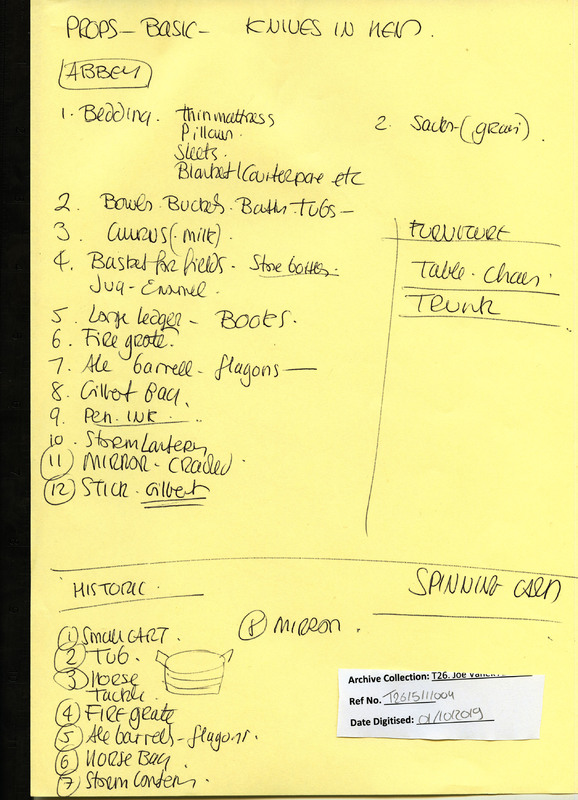 PROPS - BASIC - KNIVES IN HENS.
ABBEY
1. Bedding. Thin mattress
Pillows.
Sheets.
Blanket/Counterpane etc
2. Sacks - (grain).
2. Bowls. Buckets. Bath Tubs -
3 CHURNS (. milk).
4. Basket for fields - Stone bottles.
Jug - Enamel.
5 Large ledger - BOOKS.
6. Fire grate.
7. Ale barrell - flagons -
8. Gilbert Bag.
9. Pen. INK.
10. Storm Lantern
11 MIRROR - Cracked.
12 STICK. Gilbert
FURNITURE
Table. Chair.
TRUNK
HISTORIC.
SPINNING
1 Small CART.
2 TUB.
3 Horse
Tackle.
4 FIRE grate
5 Ale barrels - flagons.
6 HORSE Bag.
7 Storm Lantern.
8 MIRROR.
Archive Collection: T26. Joe
Ref No. T26/5/11/004
Date Digitised: 01/10/2019